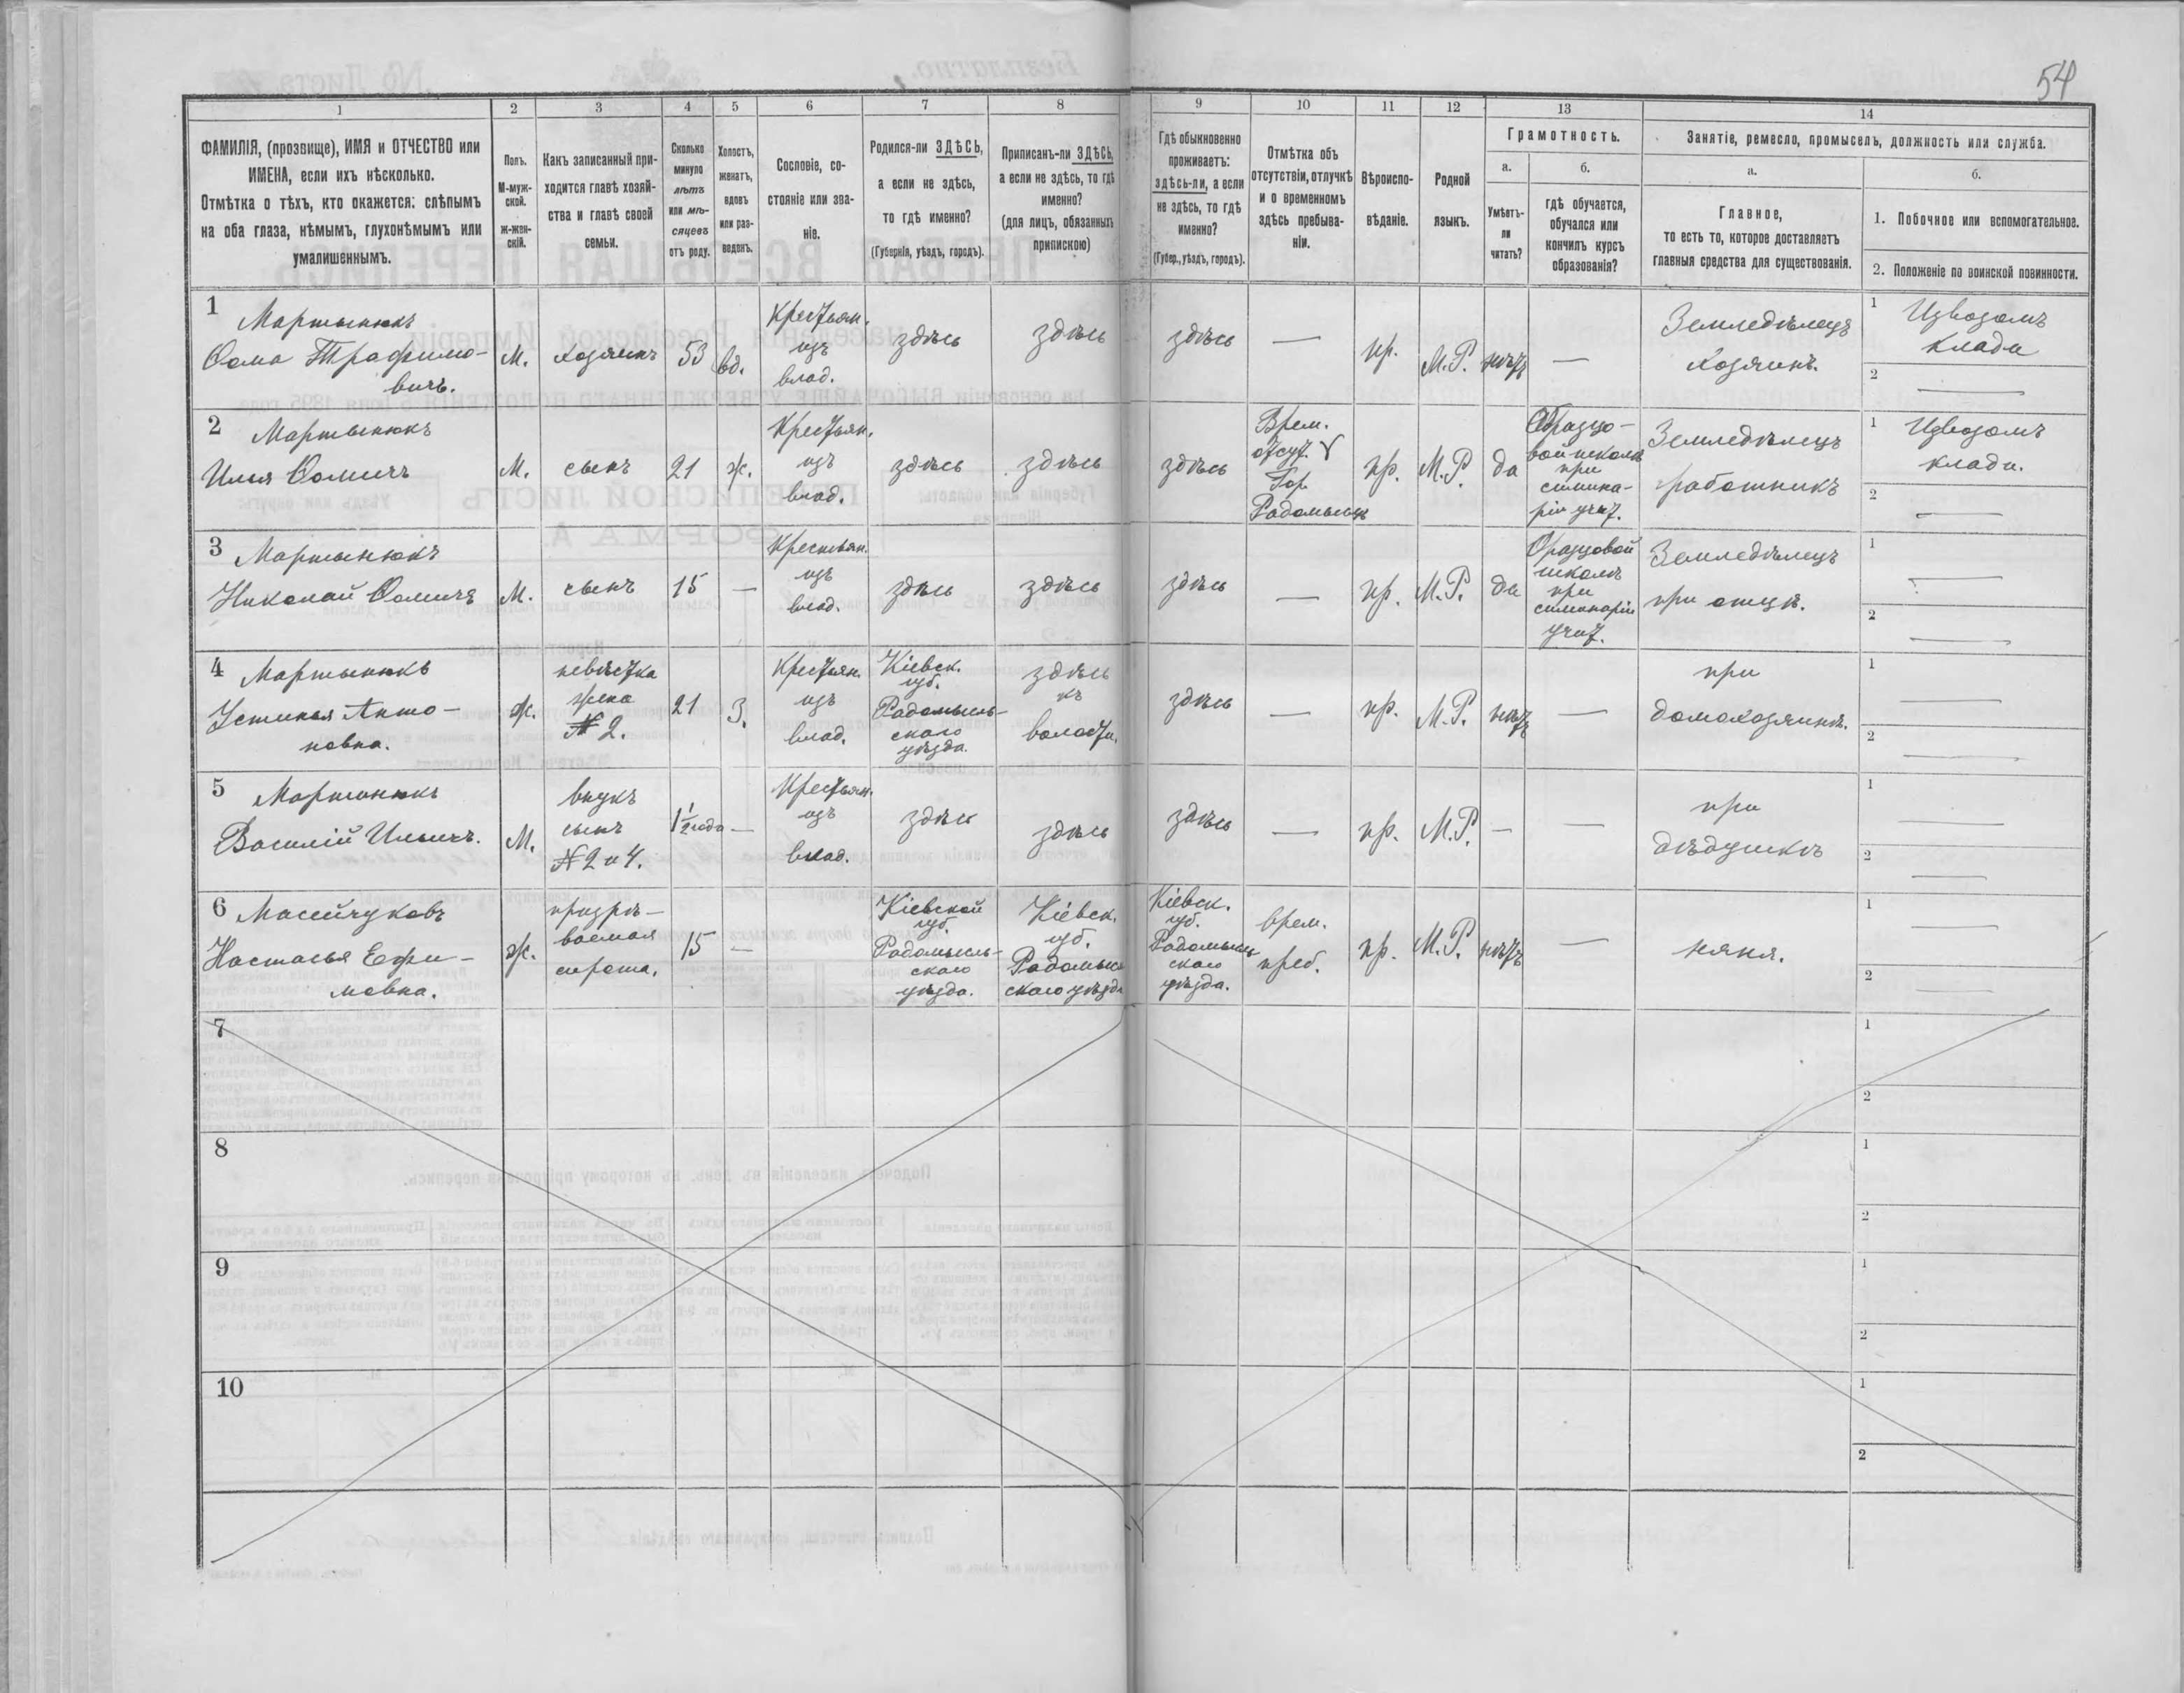 54
1
2
3
4
5
6
7
8
9
10
11
12
13
14
ФАМИЛІЯ, (прозвище), ИМЯ и ОТЧЕСТВО или
ИМЕНА, если ихъ нѣсколько.
Отмѣтка о тѣхъ, кто окажется: слѣпымъ
на оба глаза, нѣмымъ, глухонѣмымъ или
умалишеннымъ.
Полъ.
М-муж-
ской.
ж-жен-
скій.
Какъ записанный при-
ходится главѣ хозяй-
ства и главѣ своей
семьи.
Сколько
минуло
лѣтъ
или мѣ-
сяцевъ
отъ роду.
Холостъ,
женатъ,
вдовъ
или раз-
веденъ.
Сословіе, со-
стояніе или зва-
ніе.
Родился-ли ЗДѢСЬ,
а если не здѣсь,
то гдѣ именно?
(Губернія, уѣздъ, городъ).
Приписанъ-ли ЗДѢСЬ,
а если не здѣсь, то гдѣ
именно?
(для лицъ, обязанныхъ
припискою)
Гдѣ обыкновенно
проживаетъ:
здѣсь-ли, а если
не здѣсь, то гдѣ
именно?
(Губер., уѣздъ, городъ).
Отмѣтка объ
отсутствіи, отлучкѣ
и о временномъ
здѣсь пребыва-
ніи.
Вѣроиспо-
вѣданіе.
Родной
языкъ.
Грамотность.
а.
Умѣетъ-
ли
читать?
б.
гдѣ обучается,
обучался или
кончилъ курсъ
образованія?
Занятіе, ремесло, промыселъ, должность или служба.
а.
Главное,
то есть то, которое доставляетъ
главныя средства для существованія.
б.
1. Побочное или вспомогательное.
2. Положеніе по воинской повинности.
1
Мартынюкъ
Ѳома Трафимо-
вичъ.
М.
хозяинъ
53
вд.
Крестьян.
изъ
влад.
здѣсь
здѣсь
здѣсь
—
пр.
М.Р.
нѣтъ
—
Земледѣлецъ
хозяинъ.
1 Извозомъ
клади
2 —
2
Мартынюкъ
Илья Ѳомичъ
М.
сынъ
21
ж.
Крестьян.
изъ
влад.
здѣсь
здѣсь
здѣсь
Врем.
отсут.
Гор.
Радомысль
пр.
М.Р.
да
Образцо-
вой школѣ
при
семина-
ріи учит.
Земледѣлецъ
работникъ
1 Извозомъ
клади.
2 —
3
Мартынюкъ
Николай Ѳомичъ
М.
сынъ
15
—
Крестьян.
изъ
влад.
здѣсь
здѣсь
здѣсь
—
пр.
М.Р.
да
Образцовой
школѣ
при
семинаріи
учит.
Земледѣлецъ
при отцѣ.
1 —
2 —
4
Мартынюкъ
Устинья Анто-
новна.
ж.
невѣстка
жена
№ 2.
21
З.
Крестьян.
изъ
влад.
Кіевск.
губ.
Радомысль-
скаго
уѣзда.
здѣсь
къ
волости.
здѣсь
—
пр.
М.Р.
нѣтъ
—
при
домохозяинѣ.
1 —
2 —
5
Мартынюкъ
Василій Ильичъ.
М.
внукъ
сынъ
№ 2 и 4.
1 1/2 года
—
Крестьян.
изъ
влад.
здѣсь
здѣсь
здѣсь
—
пр.
М.Р.
—
—
при
дѣдушкѣ
1 —
2 —
6
Настасья Ефи-
мовна.
ж.
призрѣ-
ваемая
сирота.
15
—
Кіевской
губ.
Радомысль-
скаго
уѣзда.
Кіевск.
губ.
Радомысль
скаго уѣзда
Кіевск.
губ.
Радомысль
скаго
уѣзда.
врем.
преб.
пр.
М.Р.
нѣтъ
—
няня.
1 —
2 —
7
1
2
8
1
2
9
1
2
10
1
2